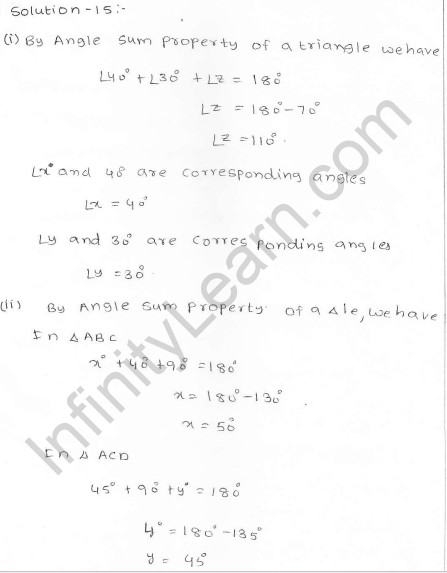 Solution-15:-
(i) By Angle Sum Property of a triangle we have
∠40° + ∠30° + ∠z = 180°
∠z = 180° - 70°
∠z = 110°.
∠x° and 40° are corresponding angles
∠x = 40°
∠y and 30° are corresponding angles
∠y = 30°.
(ii) By Angle Sum Property of a Δle, we have
In Δ ABC
x° + 40° + 90° = 180°
x = 180° - 130°
x = 50°
In Δ ACD
45° + 90° + y° = 180°
y° = 180° - 135°
y = 45°
InfinityLearn.com